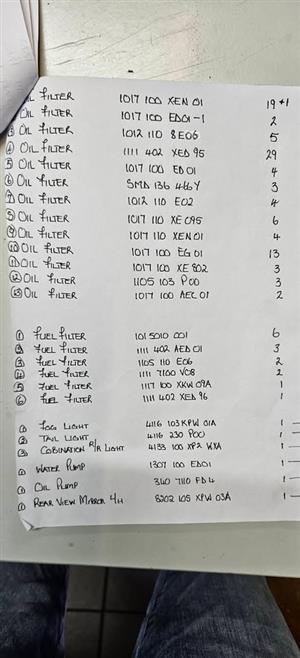 Oil Filter 1017 100 XEN 01 19 +1
Oil Filter 1017 100 ED01-1 2
③ Oil Filter 1012 110 SE06 5
④ Oil Filter 1111 402 XED 95 29
⑤ Oil Filter 1017 100 ED 01 4
⑥ Oil Filter SMD 136 466Y 3
⑦ Oil Filter 1012 110 E02 4
⑧ Oil Filter 1017 110 XE 095 6
⑨ Oil Filter 1017 110 XEN 01 4
⑩ Oil Filter 1017 100 EG 01 13
⑪ Oil Filter 1017 100 XE 802 3
⑫ Oil Filter 1105 103 P00 3
⑬ Oil Filter 1017 100 AEC 01 2
① Fuel Filter 1015010 001 6
② Fuel Filter 1111 402 AED 01 3
③ Fuel Filter 1105 110 E06 2
④ Fuel Filter 1111 7100 V08 2
⑤ Fuel Filter 1117 100 XKW 09A 1
⑥ Fuel Filter 1111 402 XED 96 1
① Fog Light 4116 103 KPW 01A 1
② Tail Light 4116 230 P00 1
③ Cobination R/R Light 4133 100 XP2 WXA 1
① Water Pump 1307 100 ED01 1
① Oil Pump 340 7110 FD4 1
① Rear View Mirror 4H 8202 105 XPW 03A 1